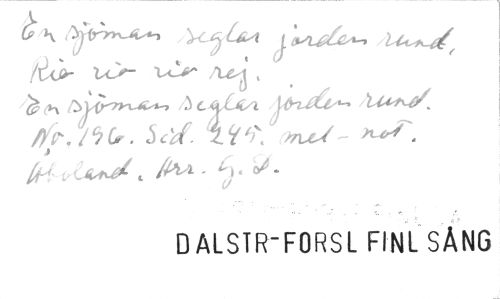 En sjöman seglar jorden rund,
Rio rio rio rej.
En sjöman seglar jorden rund.
No. 196. Sid. 245. mel-not.
Åboland. Arr. G. D.
DALSTR-FORSL FINL SÅNG